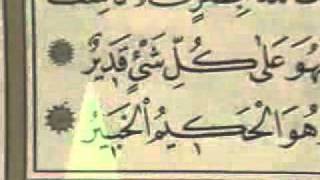 هُوَ عَلٰى كُلِّ شَىْءٍ قَدِيرٌ
وَهُوَ الْحَكِيمُ الْخَبِيرُ